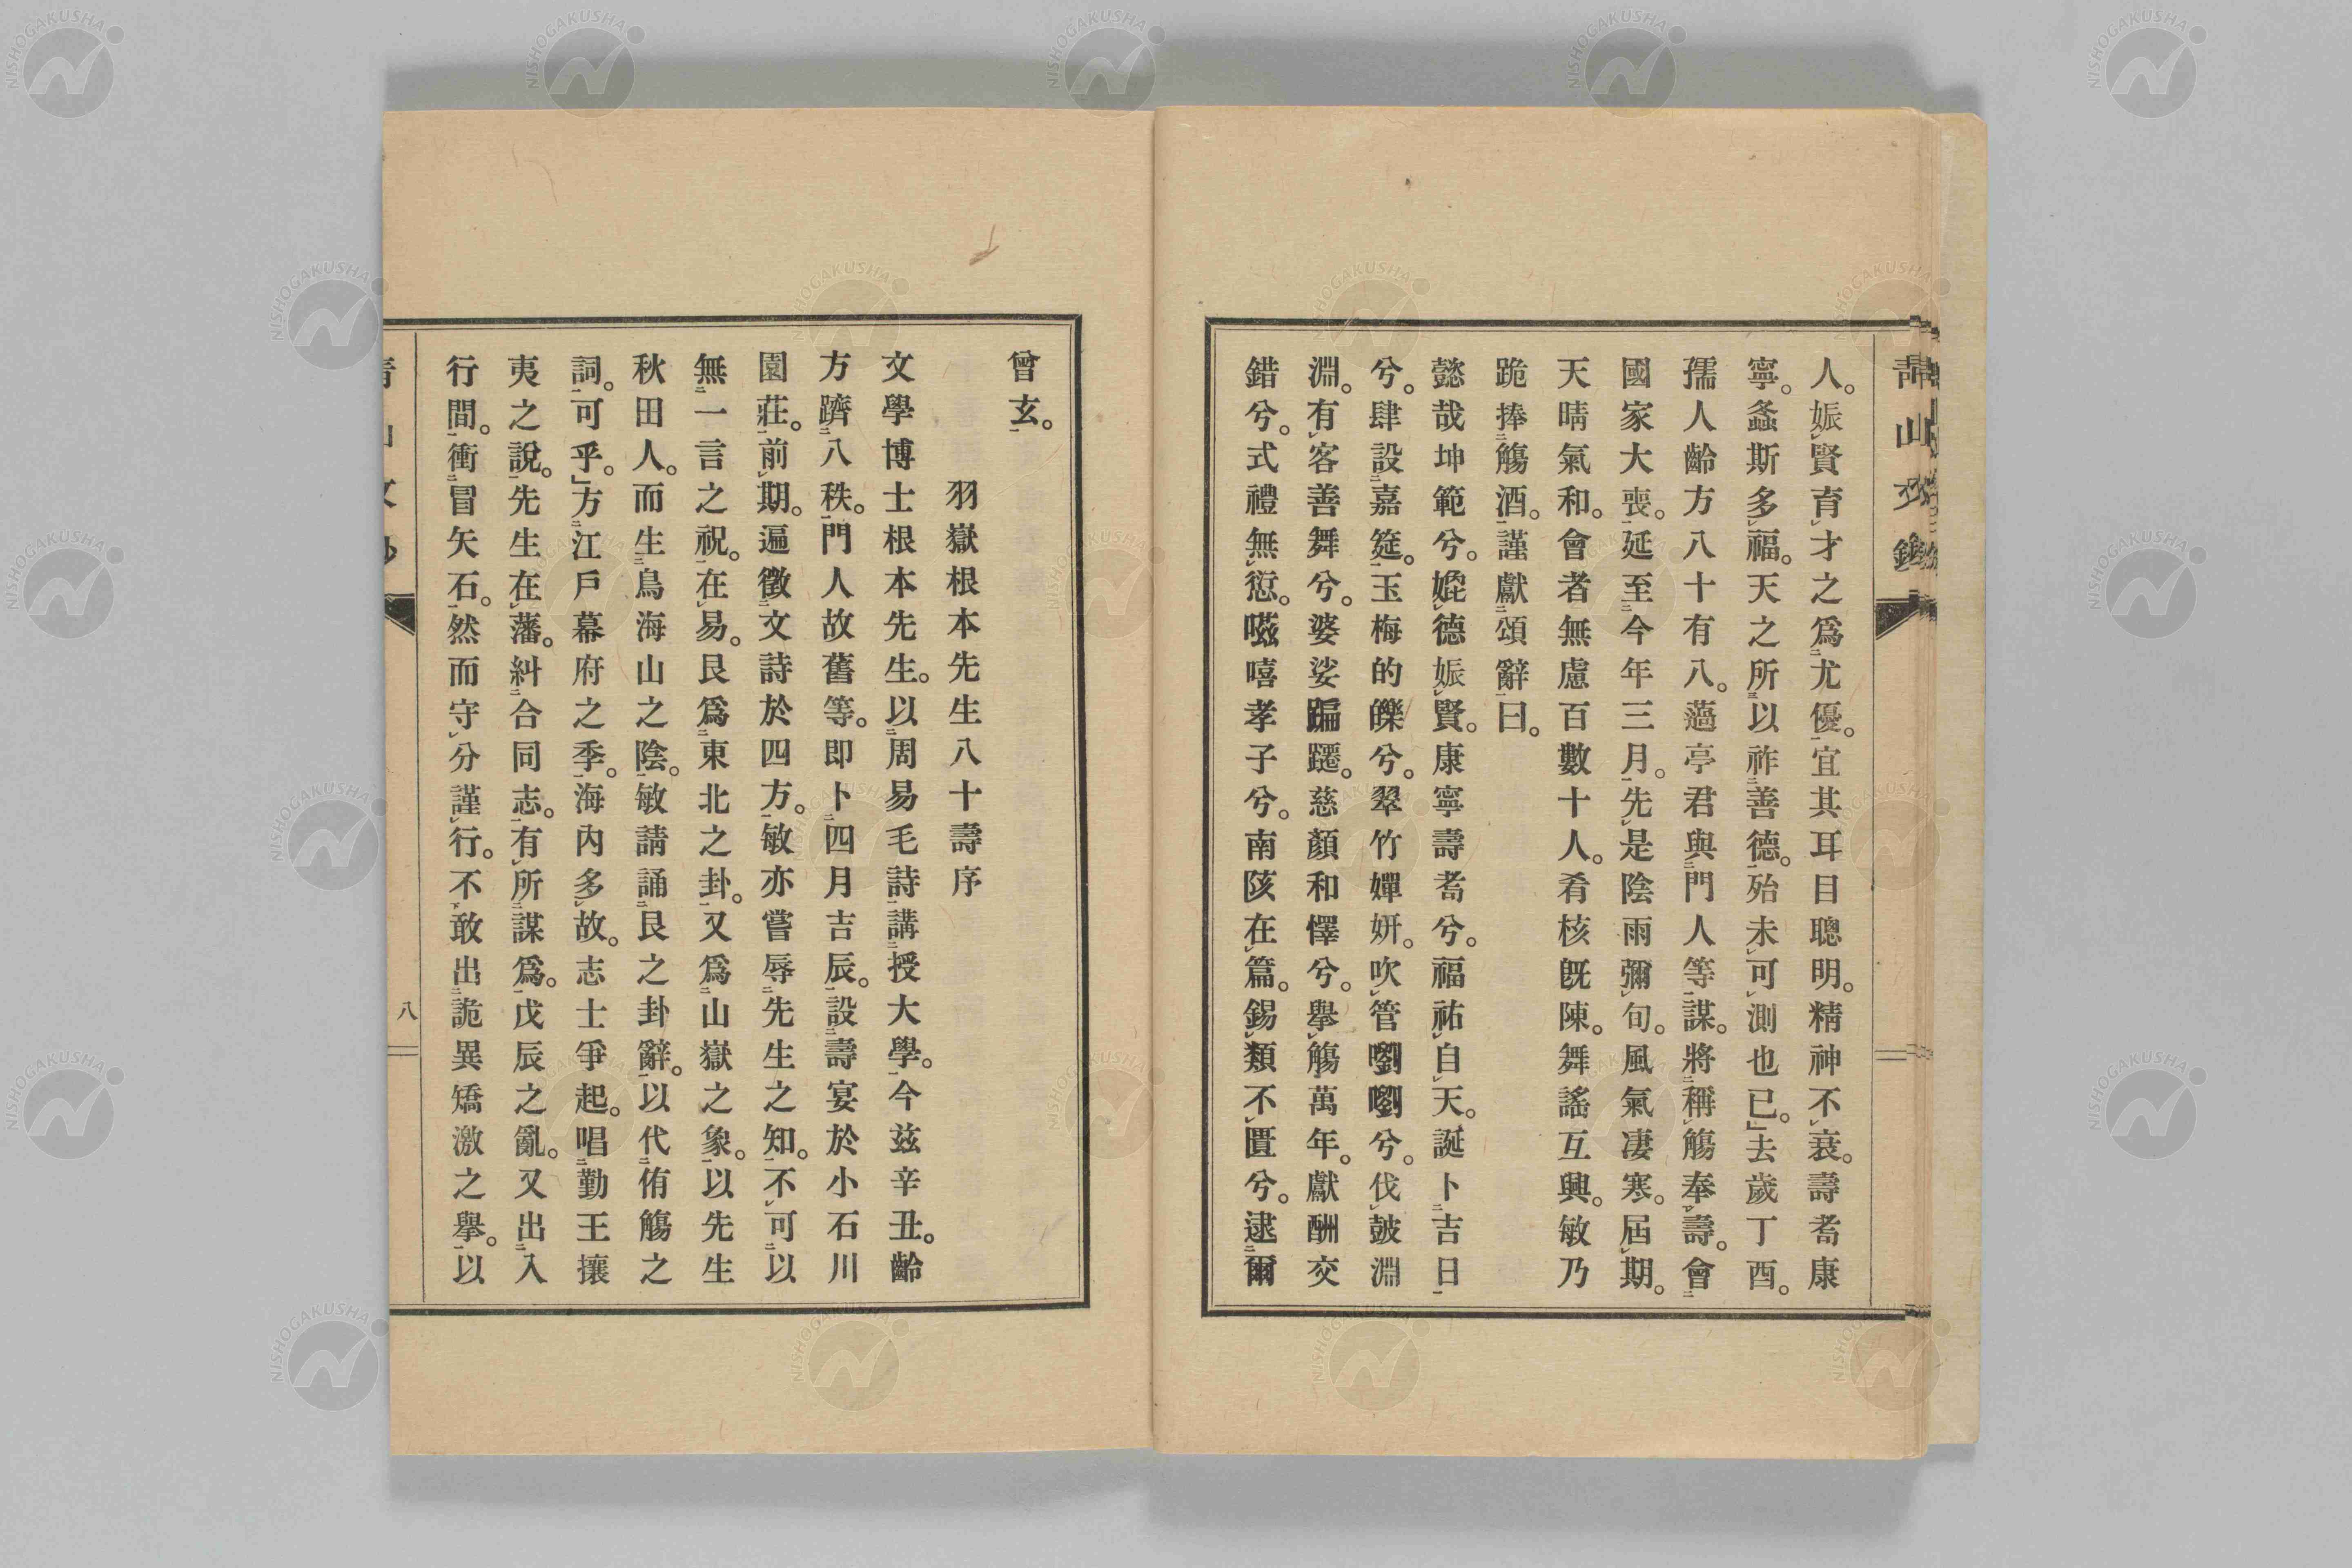 人。娠賢育才之爲尤優。宜其耳目聰明。精神不衰。壽耈康
寧。螽斯多福。天之所以祚善德。殆未可測也已。」去歲丁酉。
孺人齡方八十有八。薖亭君與門人等謀。將稱觴奉壽。會
國家大喪。延至今年三月。先是陰雨彌旬。風氣凄寒。屆期。
天晴氣和。會者無慮百數十人。肴核既陳。舞謠互興。敏乃
跪捧觴酒。謹獻頌辭曰。
懿哉坤範兮。娓德娠賢。康寧壽耈兮。福祐自天。誕卜吉日
兮。肆設嘉筵。玉梅的皪兮。翠竹嬋妍。吹管嚠嚠兮。伐鼓淵
淵。有客善舞兮。婆娑蹁躚。慈顏和懌兮。擧觴萬年。獻酬交
錯兮。式禮無愆。嗞嘻孝子兮。南陔在篇。錫類不匱兮。逮爾
曾玄。
羽嶽根本先生八十壽序
文學博士根本先生。以周易毛詩講授大學。今茲辛丑。齡
方躋八秩。門人故舊等。即卜四月吉辰。設壽宴於小石川
園莊。前期。遍徵文詩於四方。敏亦嘗辱先生之知。不可以
無一言之祝。在易。艮爲東北之卦。又爲山嶽之象。以先生
秋田人。而生鳥海山之陰。敏請誦艮之卦辭。以代侑觴之
詞。可乎。」方江戶幕府之季。海內多故。志士爭起。唱勤王攘
夷之說。先生在藩。糾合同志。有所謀爲。戊辰之亂。又出入
行間。衝冒矢石。然而守分謹行。不敢出詭異矯激之擧。以
八